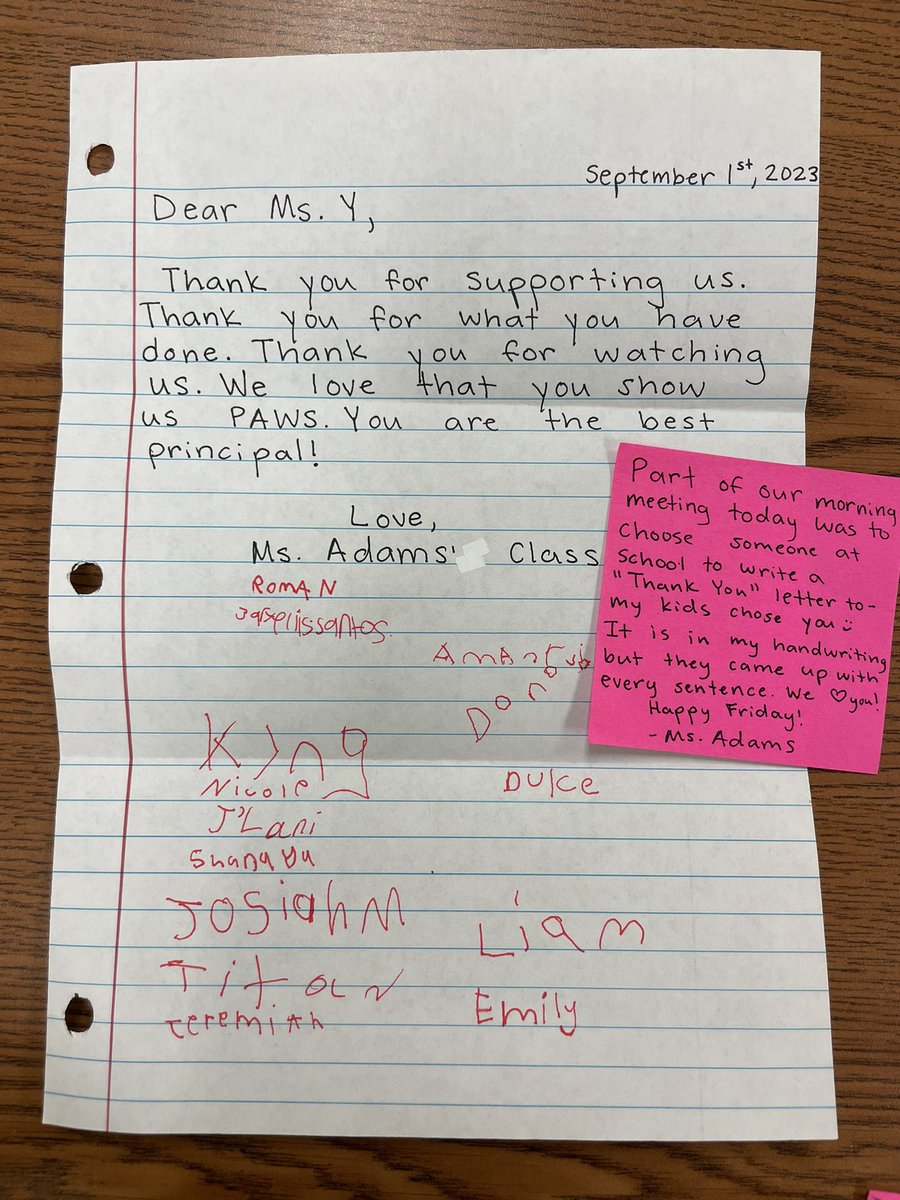 September 1st, 2023
Dear Ms. Y,
Thank you for supporting us.
Thank you for what you have
done. Thank you for watching
us. We love that you show
us PAWS. You are the best
principal!
Love,
Ms. Adams' Class
ROMAN
King
Nicole
J'Lani
JOSiahM
Titan
Jeremiah
Donn
DUlCE
Liam
Emily
Part of our morning
meeting today was to
choose someone at
school to write a
"Thank You" letter to-
my kids chose you
It is in my handwriting
but they came up with
every sentence. We ♡ you!
Happy Friday!
- Ms. Adams